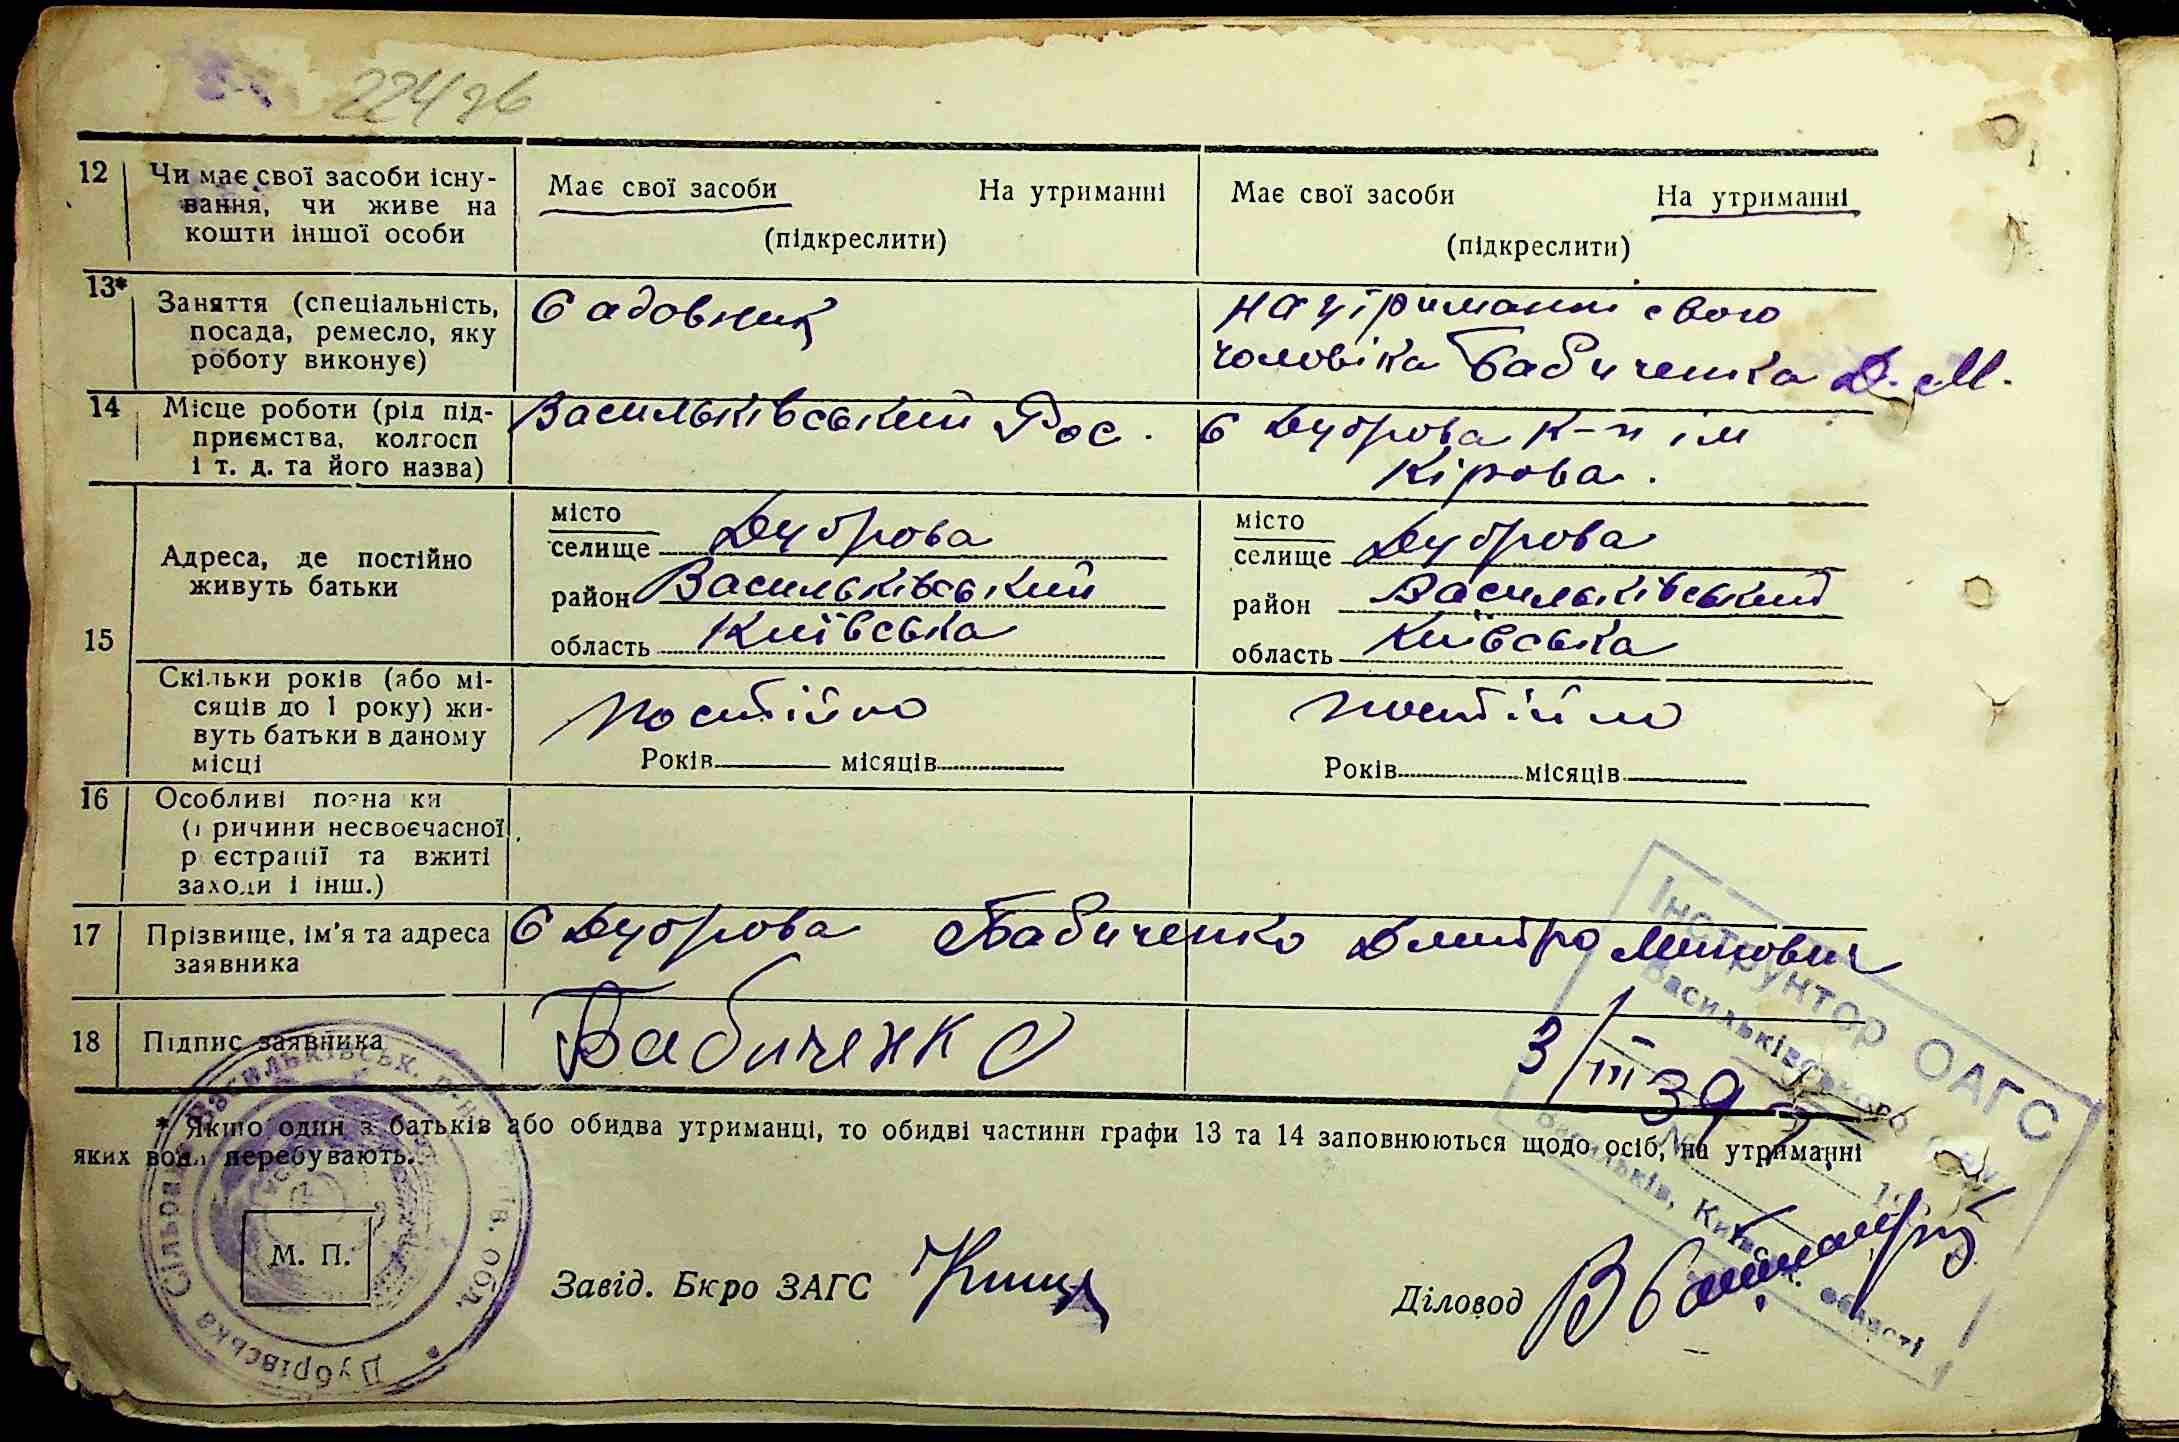 224 зв
12 Чи має свої засоби існу-
вання, чи живе на
кошти іншої особи
Має свої засоби На утриманні
(підкреслити)
Має свої засоби На утриманні
(підкреслити)
13* Заняття (спеціальність,
посада, ремесло, яку
роботу виконує)
Садовник
на утриманні свого
чоловіка Бабиченка Д. М.
14 Місце роботи (рід під-
приємства, колгосп
і т. д. та його назва)
Васильківський Рос.
С Дуброва к-п ім
Кірова.
15 Адреса, де постійно
живуть батьки
місто
селище Дуброва
район Васильківський
область Київська
місто
селище Дуброва
район Васильківський
область Київська
Скільки років (або мі-
сяців до 1 року) жи-
вуть батьки в даному
місці
постійно
Років місяців
постійно
Років місяців
16 Особливі позна ки
( ричини несвоєчасної
р єстрації та вжиті
заходи і інш.)
17 Прізвище, ім'я та адреса
заявника
С Дуброва Бабиченко Дмитро Минович
18 Підпис заявника
Бабиченко
3/III 39
* Якщо один з батьків або обидва утриманці, то обидві частини графи 13 та 14 заповнюються щодо осіб, на утриманні
яких вони перебувають.
М. П.
Завід. Бюро ЗАГС
Діловод
Дубрівська Сільрада Васильківськ. р-ну Київ. обл.
Інструктор ОАГС
Васильківського
№ 19
Васильків, Київської області